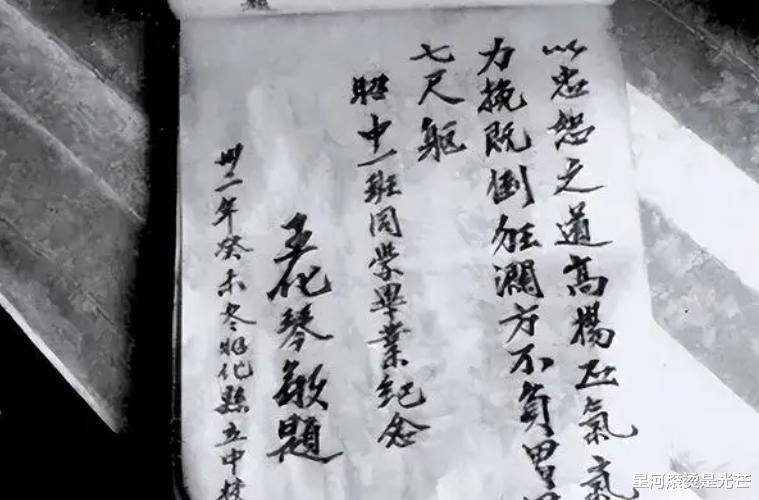 以忠恕之道高揚正氣
力挽既倒狂瀾方不負男
七尺軀
昭中一班同學畢業紀念
王化琴敬題
卅二年癸未冬昭化縣立中校
星河滚烫是光芒